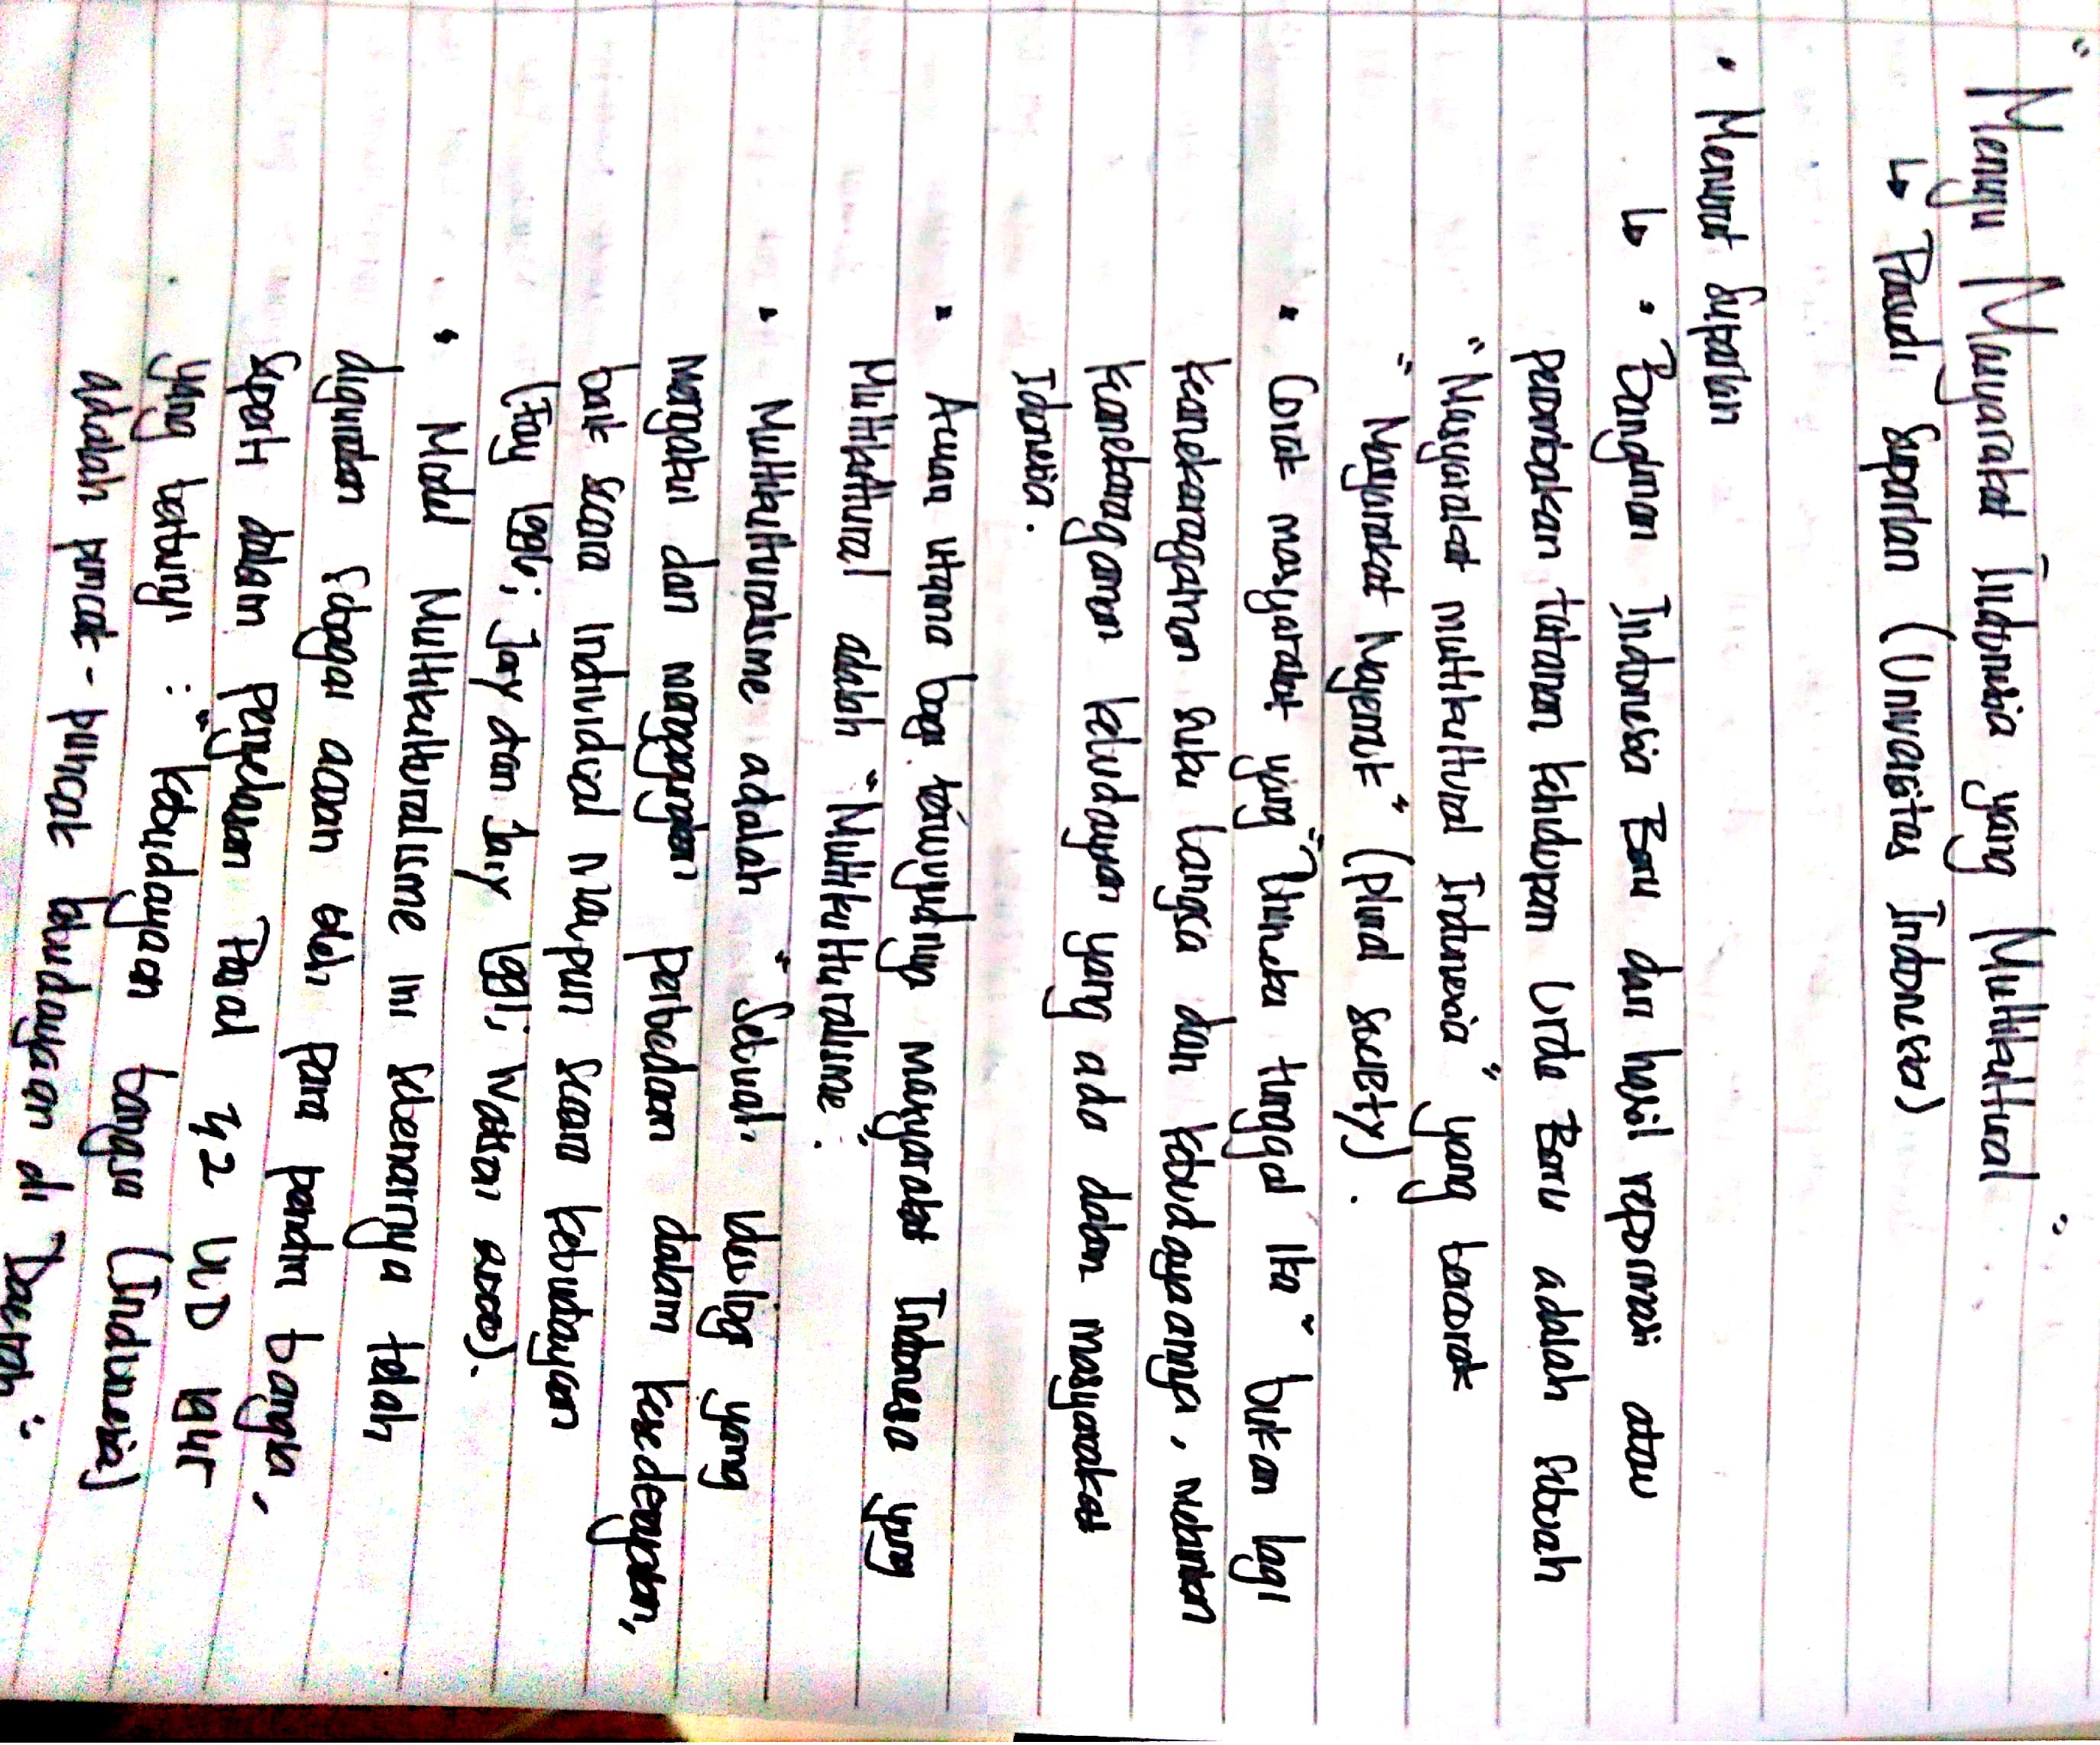 " Menuju Masyarakat Indonesia yang Multikultural "
↳ Parsudi Suparlan (Universitas Indonesia)
• Menurut Suparlan
↳ • Bangunan Indonesia Baru dari hasil reformasi atau
perombakan tatanan kehidupan Orde Baru adalah sebuah
"Masyarakat multikultural Indonesia" yang bercorak
"Masyarakat Majemuk" (plural society).
• Corak masyarakat yang "Bhineka tunggal Ika" bukan lagi
keanekaragaman suku bangsa dan kebudayaannya, melainkan
keanekaragaman kebudayaan yang ada dalam masyarakat
Indonesia.
• Acuan utama bagi terwujudnya masyarakat Indonesia yang
Multikultural adalah "Multikulturalisme".
• Multikulturalisme adalah "Sebuah ideologi yang
mengakui dan mengagungkan perbedaan dalam kesederajatan,
baik secara individual maupun secara kebudayaan
(Fay 1996; Jary dan Jary 1991; Watson 2000).
• Model Multikulturalisme ini sebenarnya telah
digunakan sebagai acuan oleh para pendiri bangsa,
seperti dalam penjelasan Pasal 32 UUD 1945
yang berbunyi : "kebudayaan bangsa (Indonesia)
adalah puncak-puncak kebudayaan di Daerah".